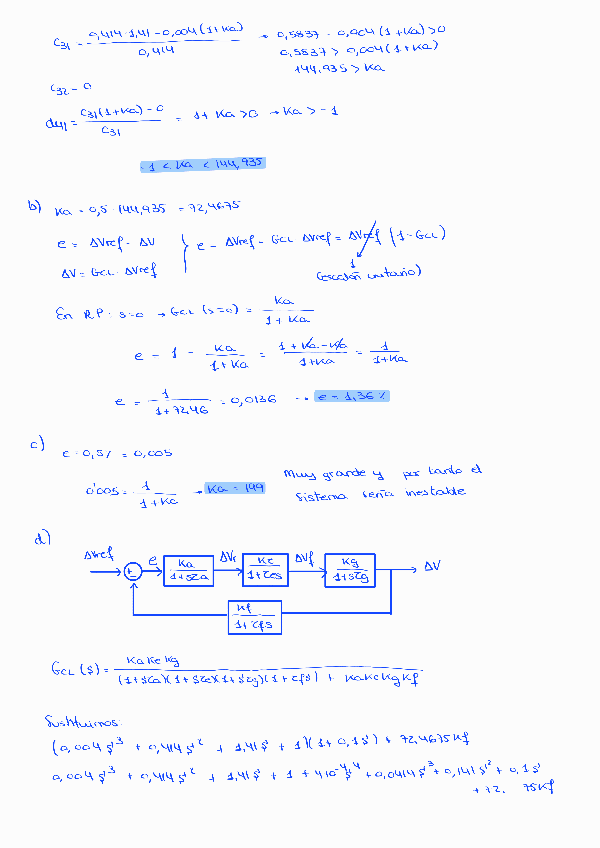 C31 = (0,414·1,41 - 0,004(1+Ka)) / 0,414 → 0,5837 - 0,004(1+Ka) > 0
0,5837 > 0,004(1+Ka)
144,935 > Ka
C32 = 0
d41 = (C31(1+Ka) - 0) / C31 = 1+Ka > 0 → Ka > -1
-1 < Ka < 144,935
b) Ka = 0,5 · 144,935 = 72,4675
e = ΔVref - ΔV
ΔV = GCL · ΔVref
e = ΔVref - GCL ΔVref = ΔVref (1 - GCL)
1
(escalón unitario)
En RP s=0 → GCL (s=0) = Ka / (1+Ka)
e = 1 - Ka / (1+Ka) = (1+Ka-Ka) / (1+Ka) = 1 / (1+Ka)
e = 1 / (1+72,46) = 0,0136 → e = 1,36%
c) e = 0,5% = 0,005
0'005 = 1 / (1+Ka) → Ka = 199
Muy grande y por tanto el
sistema sería inestable
d)
ΔVref e Ka / (1+sζa) ΔVr Ke / (1+ζes) ΔVf Kg / (1+sζg) ΔV
Kf / (1+ζfs)
GCL (s) = Ka Ke Kg / ((1+sζa)(1+sζe)(1+sζg)(1+ζfs) + KaKeKgKf)
Sustituimos:
(0,004 s³ + 0,414 s² + 1,41 s + 1)(1+0,1s) + 72,4675Kf
0,004 s³ + 0,414 s² + 1,41 s + 1 + 4·10⁻⁴ s⁴ + 0,0414 s³ + 0,141 s² + 0,1 s
+ 72, 75Kf